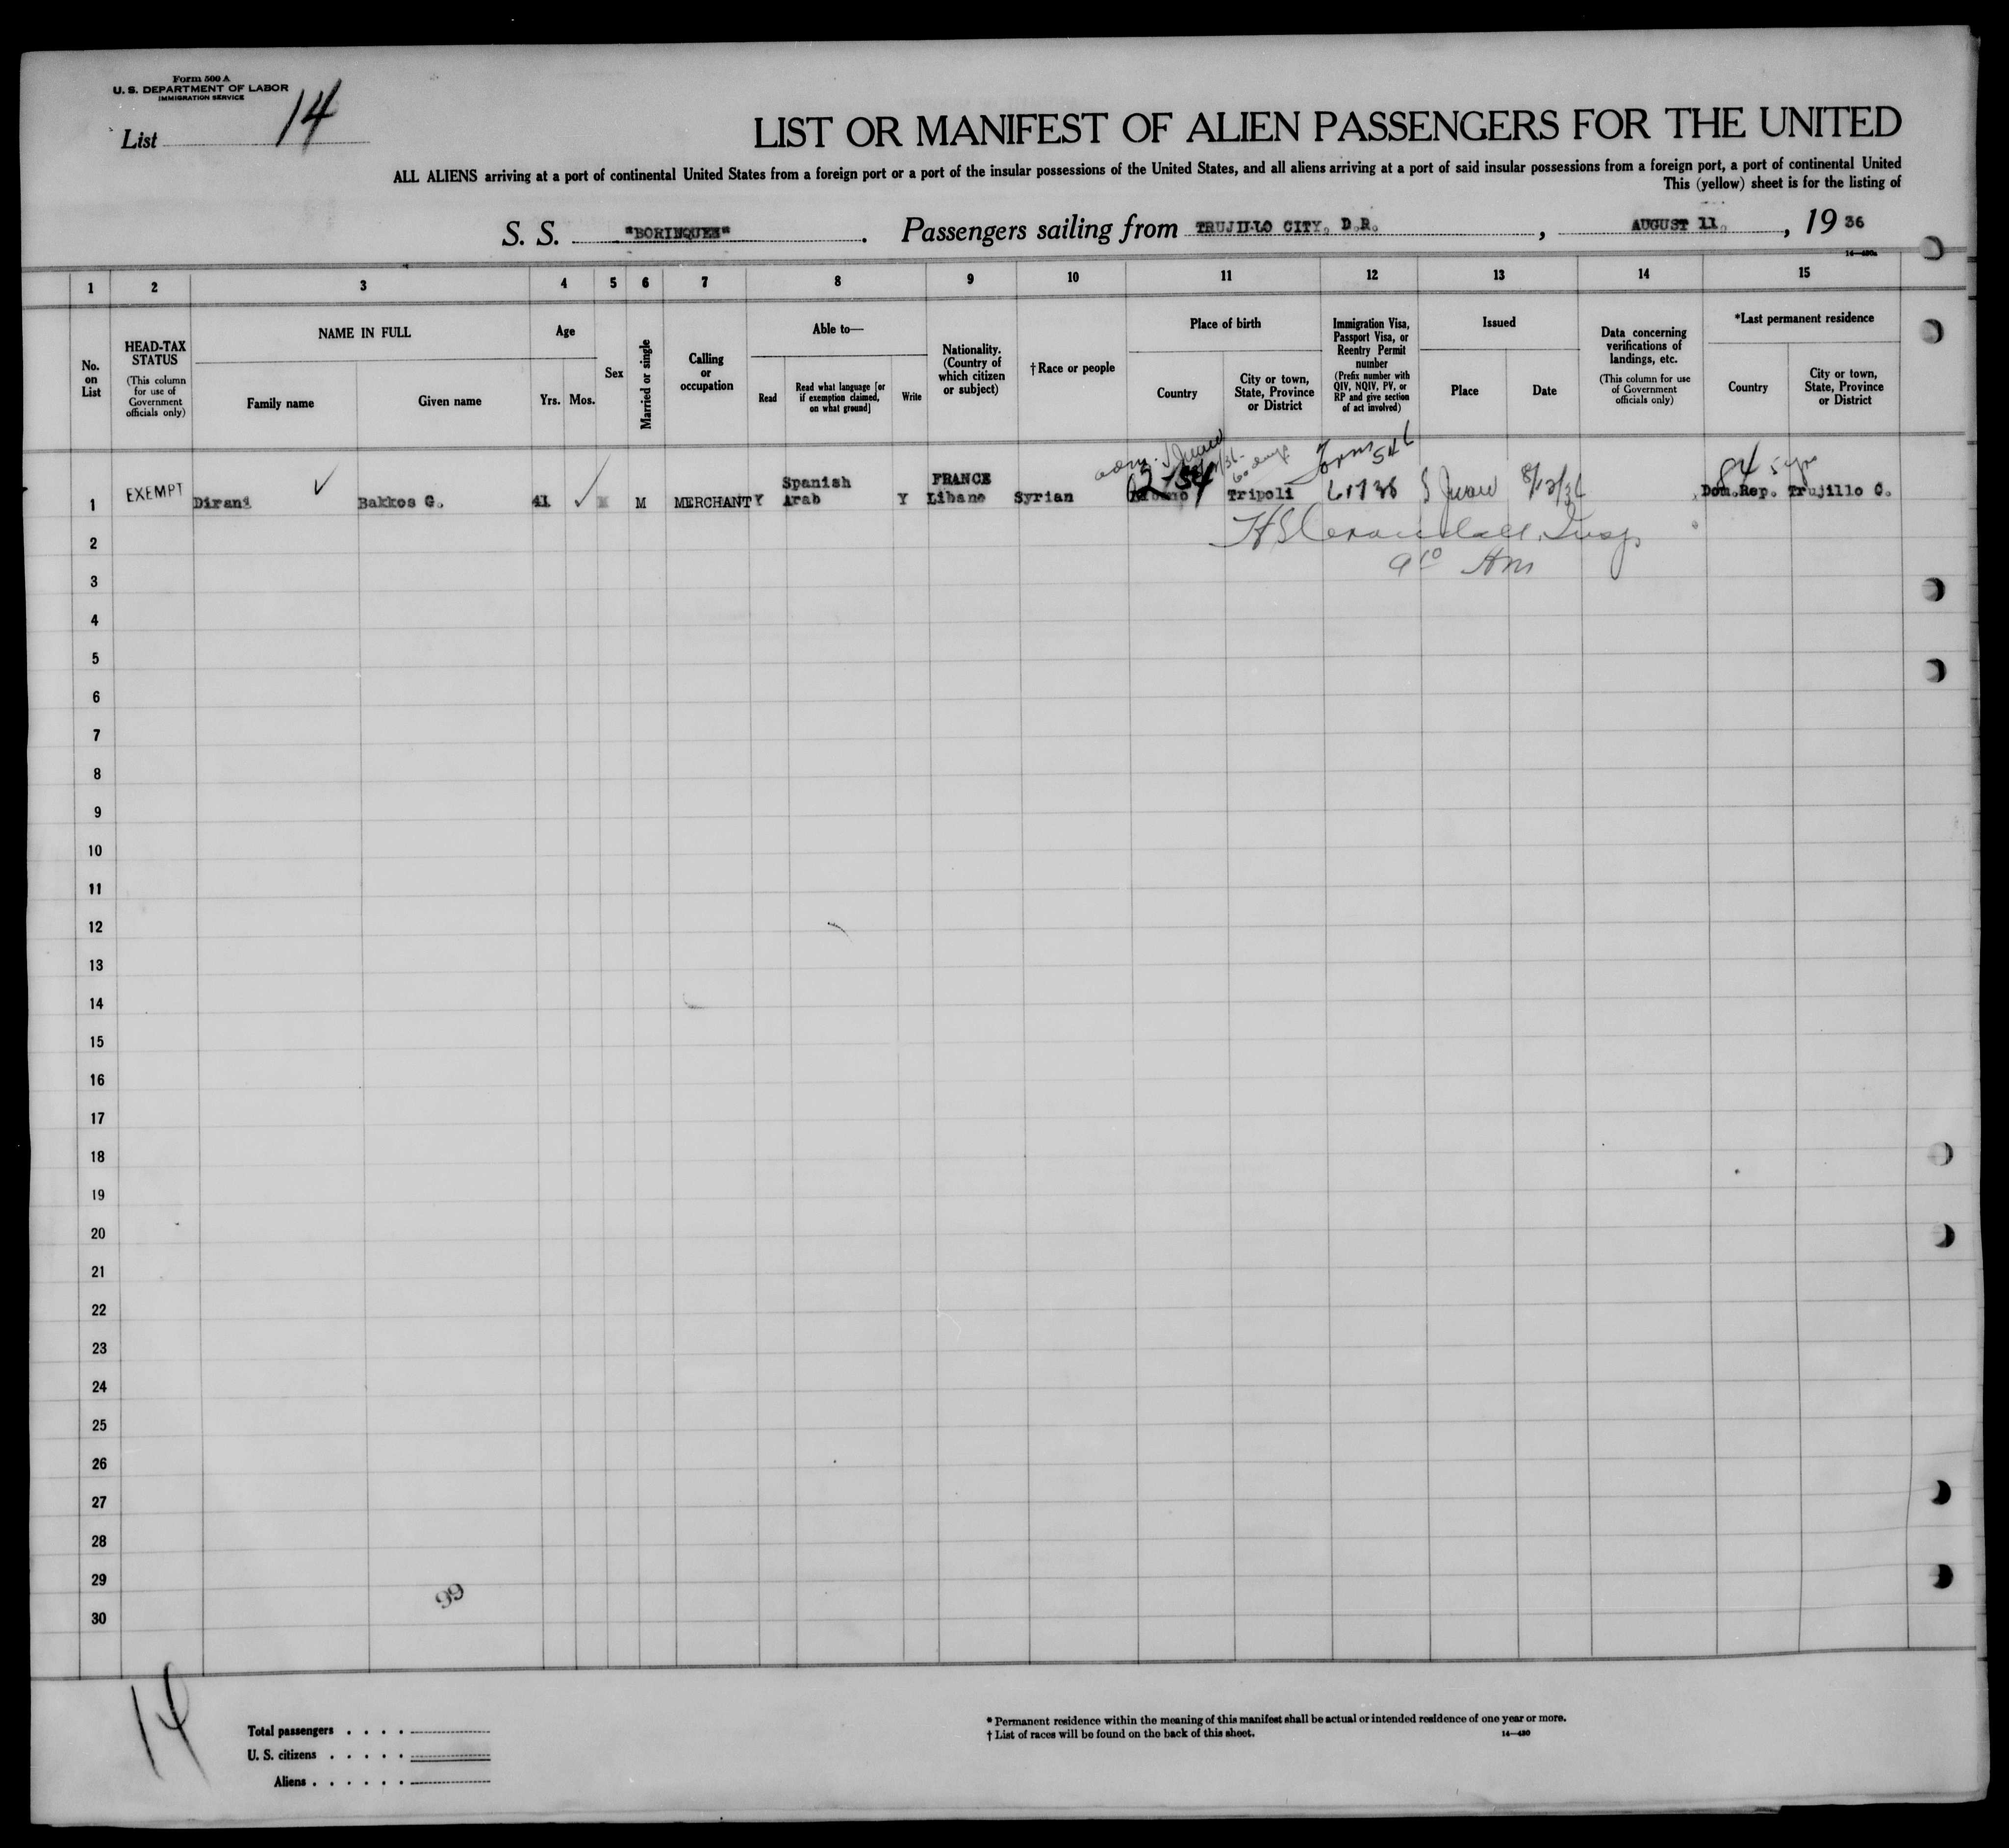 Form 500 A
U. S. DEPARTMENT OF LABOR
IMMIGRATION SERVICE
List 14
LIST OR MANIFEST OF ALIEN PASSENGERS FOR THE UNITED
ALL ALIENS arriving at a port of continental United States from a foreign port or a port of the insular possessions of the United States, and all aliens arriving at a port of said insular possessions from a foreign port, a port of continental United
This (yellow) sheet is for the listing of
S. S. "BORINQUEN". Passengers sailing from TRUJILLO CITY, D.R., AUGUST 11, 1936
1 2 3 4 5 6 7 8 9 10 11 12 13 14 15
No. on List
HEAD-TAX STATUS
(This column for use of Government officials only)
NAME IN FULL
Family name
Given name
Age
Yrs. Mos.
Sex
Married or single
Calling or occupation
Able to—
Read
Read what language [or if exemption claimed, on what ground]
Write
Nationality. (Country of which citizen or subject)
†Race or people
Place of birth
Country
City or town, State, Province or District
Immigration Visa, Passport Visa, or Reentry Permit number
(Prefix number with QIV, NQIV, PV, or RP and give section of act involved)
Issued
Place
Date
Data concerning verifications of landings, etc.
(This column for use of Government officials only)
*Last permanent residence
Country
City or town, State, Province or District
adm. S Juan
60 days
Form 546
84 5 yrs
Spanish FRANCE
1 EXEMPT Dirani Bakkos G. 41 M M MERCHANT Y Arab Y Libano Syrian Libano Tripoli 61738 S Juan 8/12/36 Dom.Rep. Trujillo C.
2
9 10 Am
3
4
5
6
7
8
9
10
11
12
13
14
15
16
17
18
19
20
21
22
23
24
25
26
27
28
29
30
99
14
Total passengers
U. S. citizens
Aliens
* Permanent residence within the meaning of this manifest shall be actual or intended residence of one year or more.
† List of races will be found on the back of this sheet.
14—430